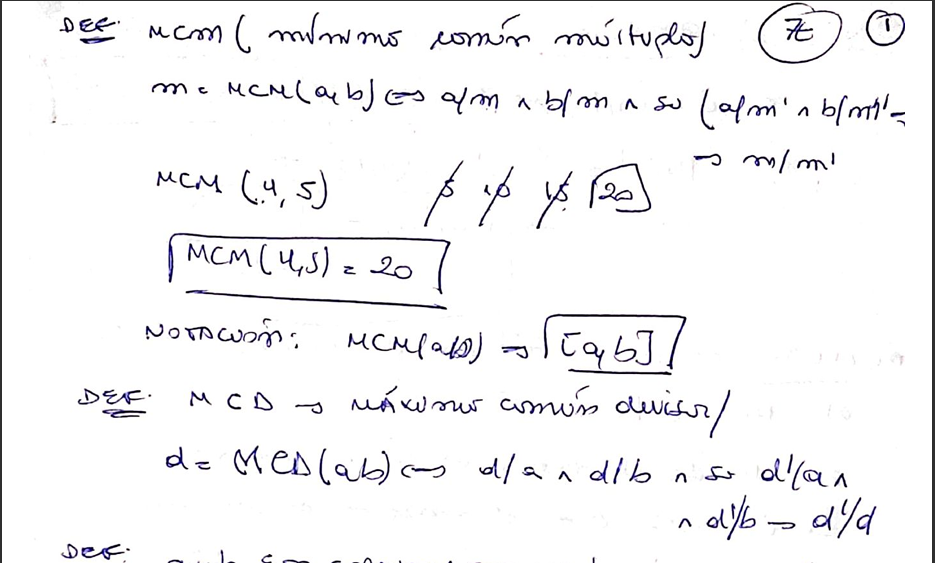 DEF. MCM ( mínimo común múltiplo) ℤ ①
m = MCM(a,b) ⇔ a/m ∧ b/m ∧ si (a/m' ∧ b/m') ⇒
→ m/m'
MCM (4,5) 5 10 15 20
MCM(4,5) = 20
NOTACIÓN: MCM(a,b) → [a,b]
DEF. MCD → MÁXIMO común divisor/
d = MCD(a,b) ⇔ d/a ∧ d/b ∧ si d'/a ∧
∧ d'/b → d'/d
DEF.